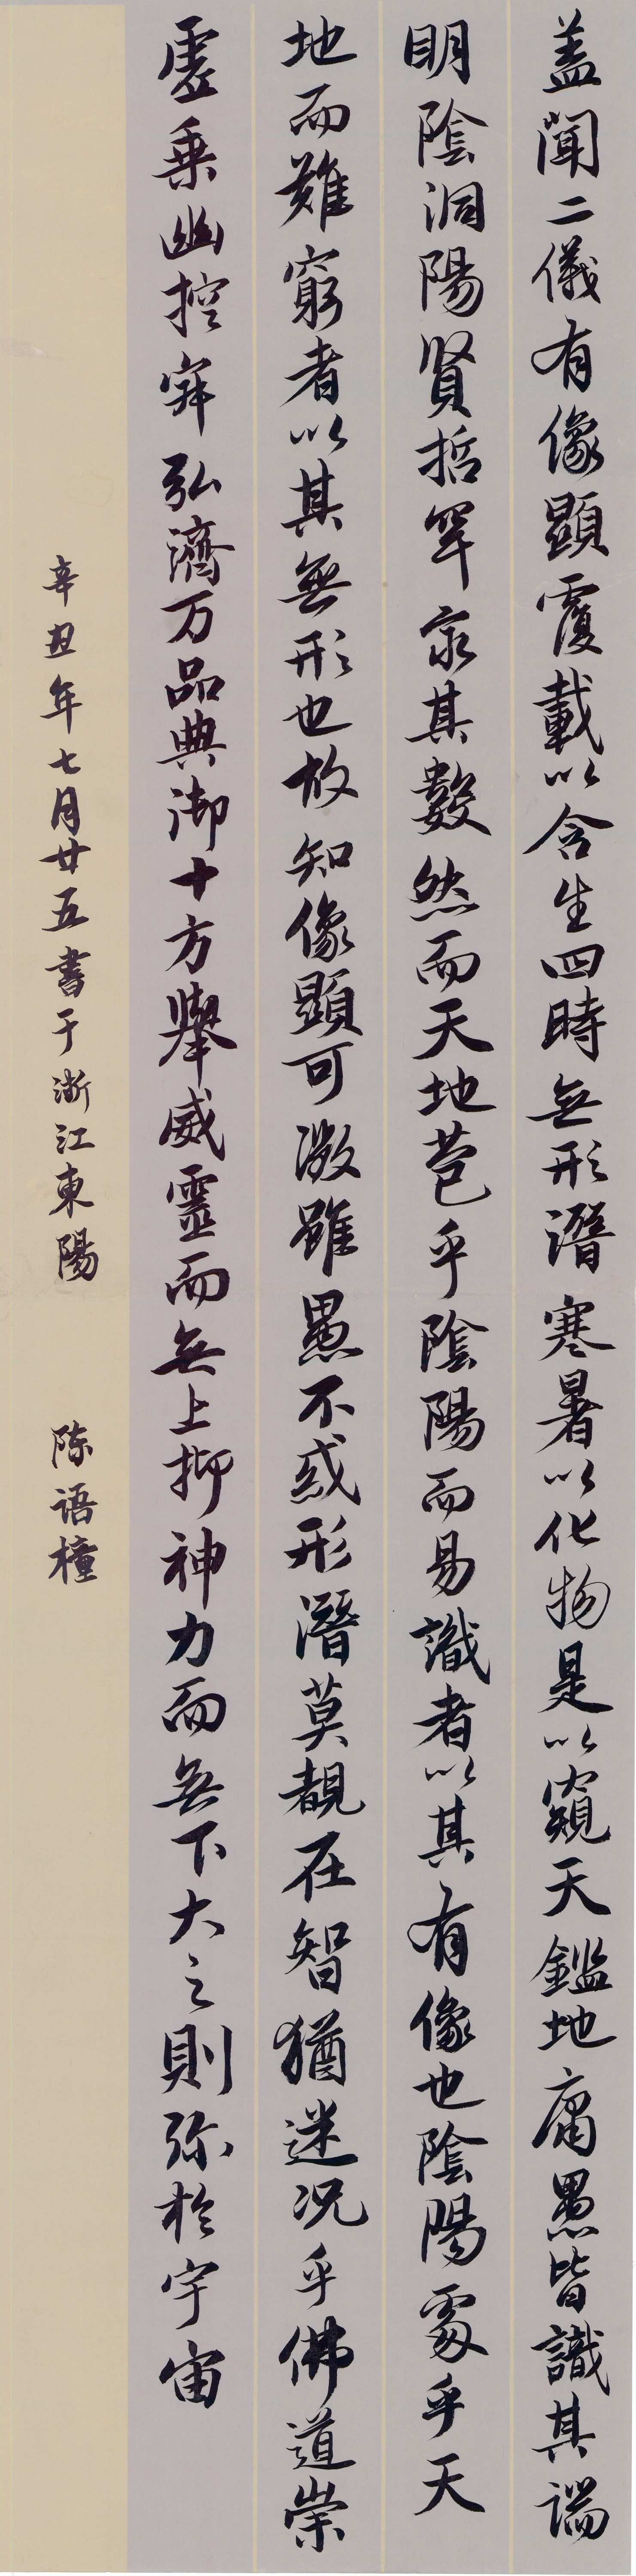 蓋聞二儀有像顯覆載以含生四時無形潛寒暑以化物是以窺天鑑地庸愚皆識其端
明陰洞陽賢哲罕窮其數然而天地苞乎陰陽而易識者以其有像也陰陽處乎天
地而難窮者以其無形也故知像顯可徵雖愚不惑形潛莫覩在智猶迷况乎佛道崇
虛乘幽控寂弘濟万品典御十方舉威靈而無上抑神力而無下大之則弥於宇宙
辛丑年七月廿五書于浙江東陽
陈语橦